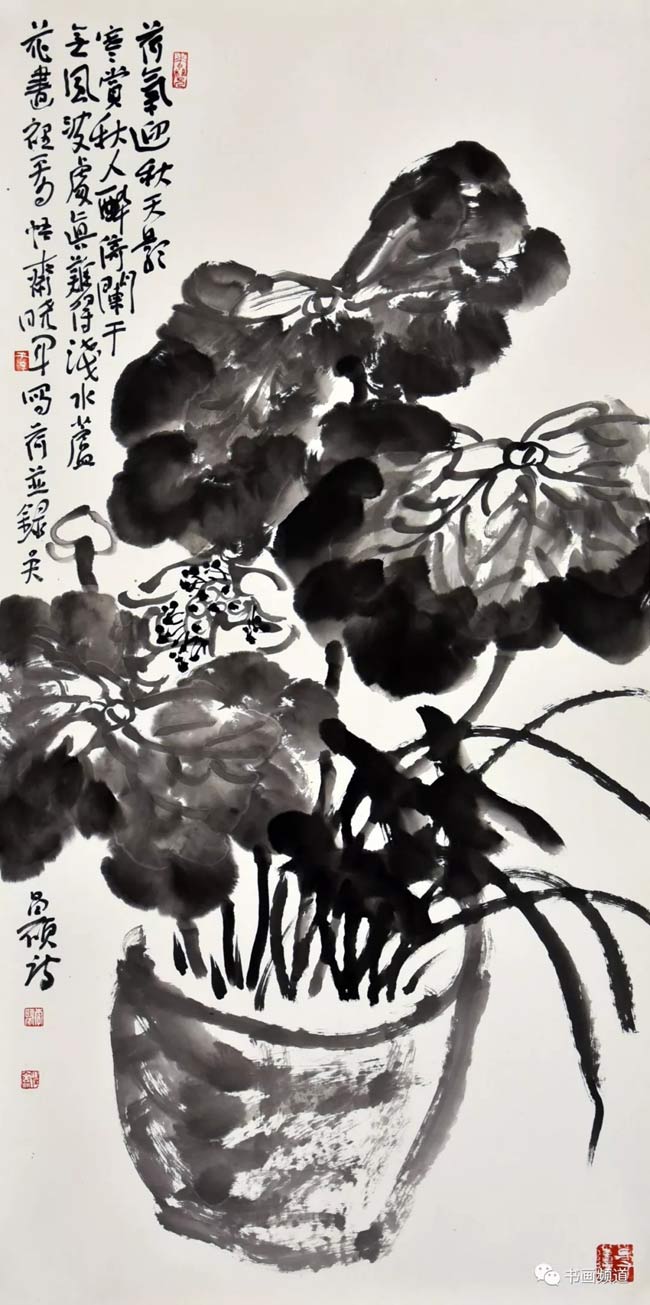 荷氣迎秋天影
寒賞秋人醉倚闌干
无風波處真難得淺水蘆
花畫裡看悟齋曉軍寫荷並錄吳
昌碩詩
书画频道